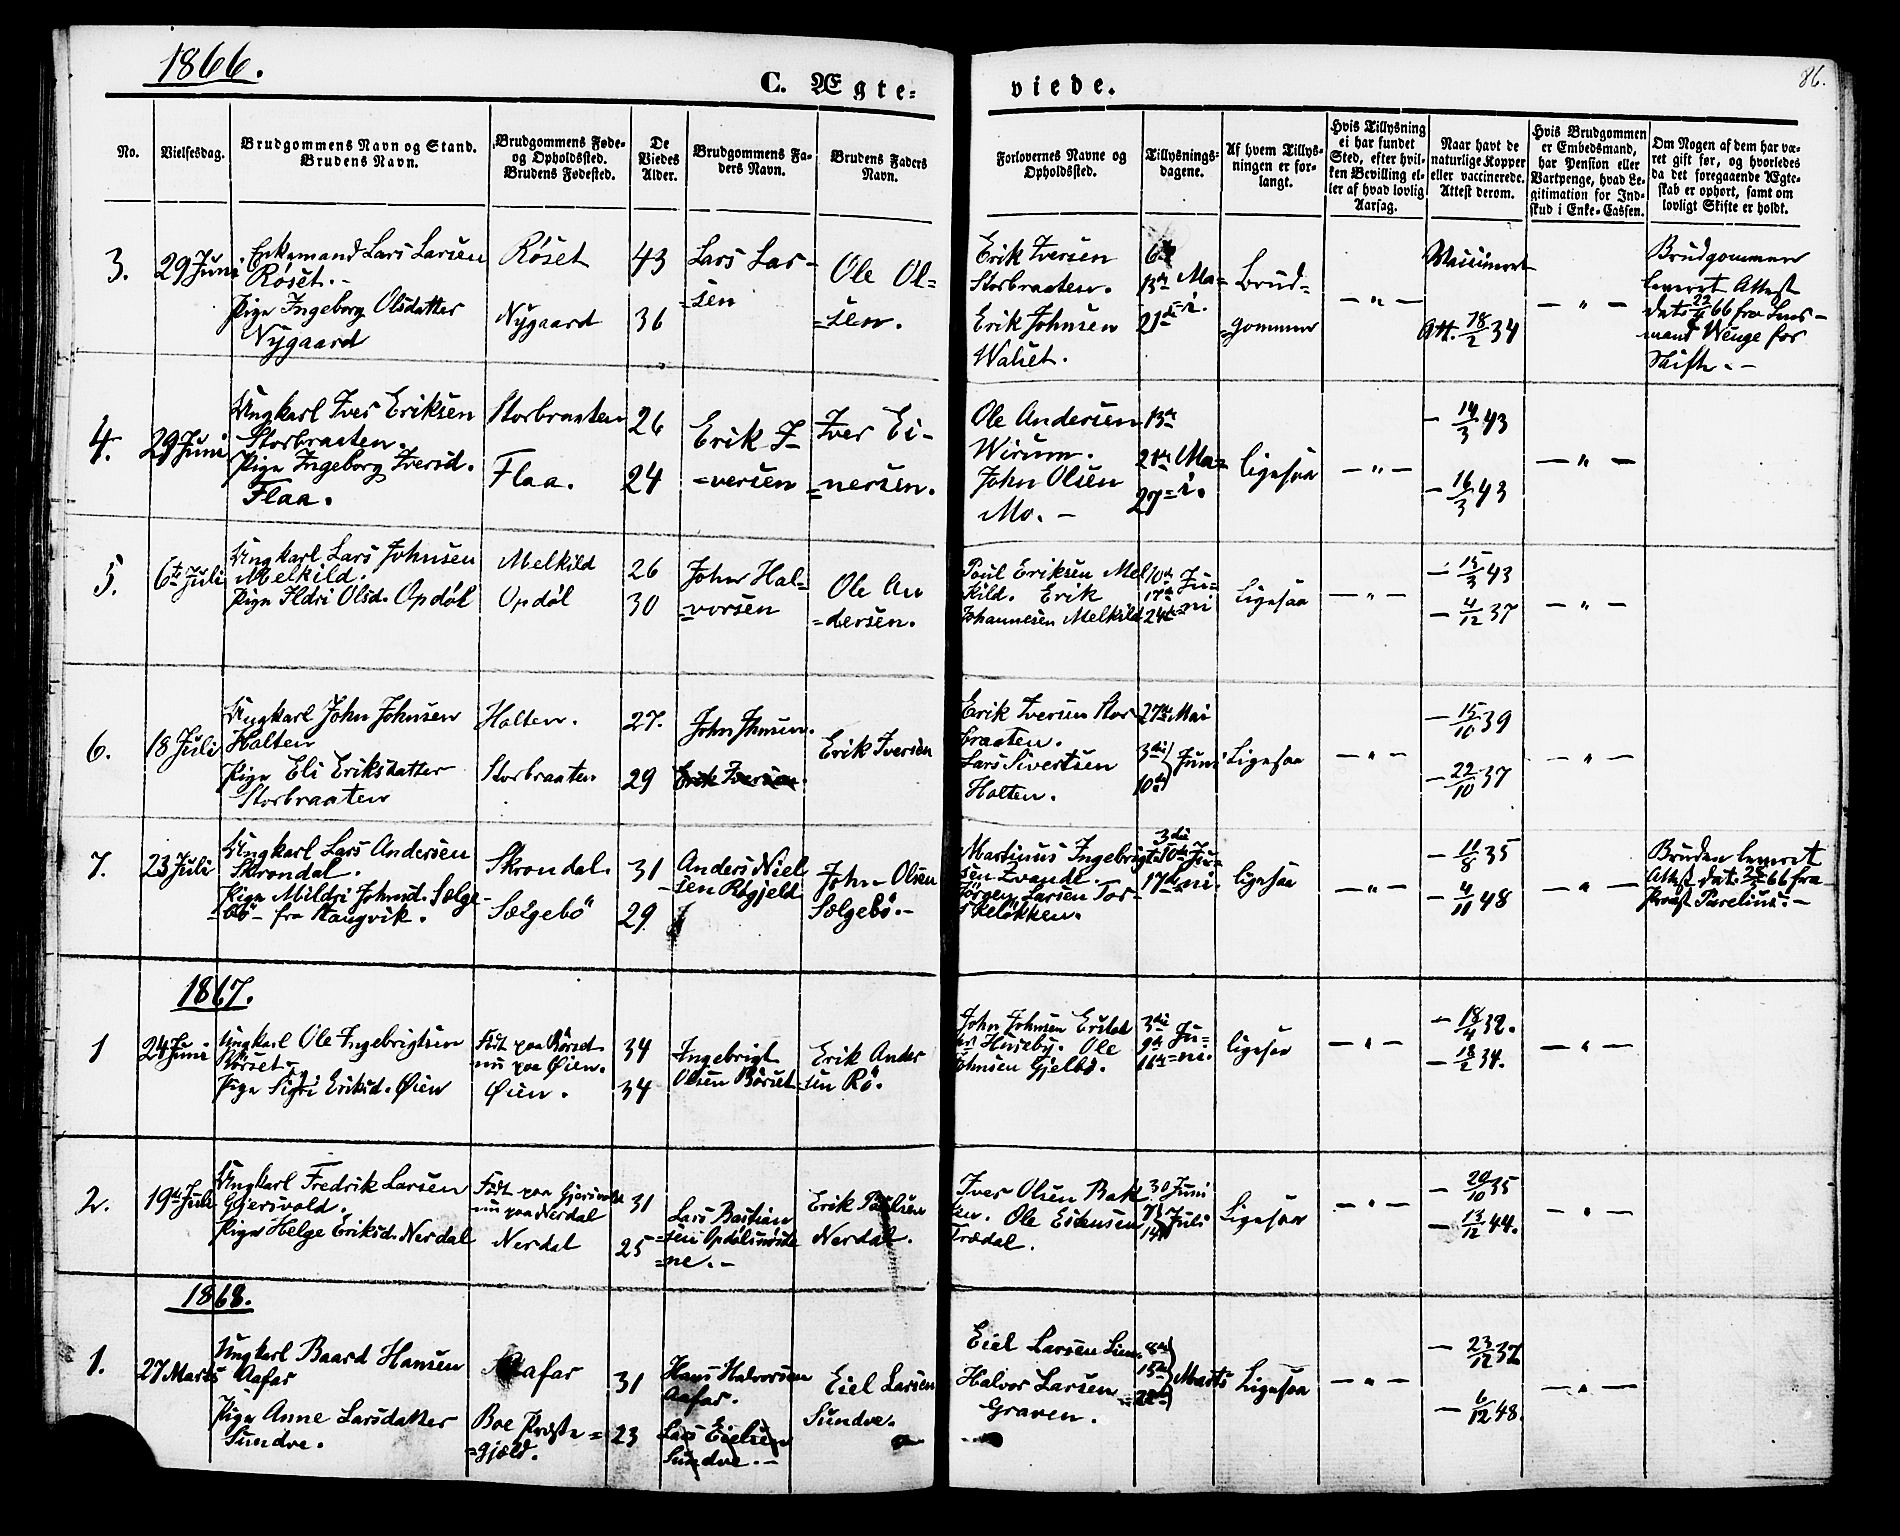 1866.
86.
C. Ægte=
viede.
No.
Vielsesdag.
Brudgommens Navn og Stand.
Brudens Navn.
Brudgommens Føde-
og Opholdssted.
Brudens Fødested.
De
Viedes
Alder.
Brudgommens Fa-
ders Navn.
Brudens Faders
Navn.
Forlovernes Navne og
Opholdssted.
Tillysnings-
dagene.
Af hvem Tillys-
ningen er for-
langt.
Hvis Tillysning
ei har fundet
Sted, efter hvil-
ken Bevilling el-
ler af hvad lovlig
Aarsag.
Naar havt de
naturlige Kopper
eller vaccinerede.
Attest derom.
Hvis Brudgommen
er Embedsmand,
har Pension eller
Vartpenge, hvad Le-
gitimation for Ind-
skud i Enke-Cassen.
Om Nogen af dem har væ-
ret gift før, og hvorledes
da det foregaaende Ægte-
skab er ophørt, samt om
lovligt Skifte er holdt.
3.
29 Juni
Enkemand Lars Larsen
Røset.-
Pige Ingeborg Olsdatter
Nygaard
Røset
Nygaard
43
36
Lars Lar-
=sen
Ole Ol=
=sen.
Erik Iversen
Storbraaten.
Erik Johnsen
Walset.
6te
13de Ma=
21de =i.
Brud=
gommen
— " —
Vaccineret
Att. 18/2 34
— " —
Brudgommen
leveret Attest
dat. 22/4 66 fra Lens-
mand Wenge for
Skifte.-
4.
29 Juni
Ungkarl Iver Eriksen
Storbraaten.
Pige Ingeborg Iversd.
Flaa.
Storbraaten
Flaa.
26
24
Erik I-
=versen
Iver Ei-
=nersen.
Ole Andersen
Wirum.
John Olsen
Mo. -
13de
21de Ma=
27 =i.
Ligesaa
— " —
— 14/3 43
— 16/3 43
— " —
5.
6te Juli
Ungkarl Lars Johnsen
Melkild.
Pige Ildri Olsd. Opdøl
Melkild
Opdøl
26
30
John Hal=
=vorsen
Ole An
=dersen.
Poul Eriksen Mel
kild. Erik
Johannesen Melkild
10de Ju=
17de =ni
24de
Ligesaa
— " —
— 15/3 43
— 4/12 37
— " —
6.
18 Juli
Ungkarl John Johnsen
Halten
Pige Eli Eriksdatter
Storbraaten
Halten.
Storbraaten
27.
29
John Jhnsen.
Erik Iversen.
Erik Iversen
Erik Iversen Stor
braaten.
Lars Sivertsen
Halten.
27de Mai
3die
10de
Juni
Ligesaa
— " —
— 15/10 39
— 22/10 37
— " —
7.
23 Juli
Ungkarl Lars Andersen
Skrondal.
Pige Mildri Johnsd. Sælge-
=bö - fra Stangvik.
Skrondal.
Sælgebö
31
29
Anders Niel
-sen Røgjeld
John Olsen
Sælgebö.-
Martinus Ingebrigt-
sen Evandt.-
Jörgen Larsen Tor-
skeløkken.
3die
10de Ju=
17de =ni.
Ligesaa
— " —
— 11/8 35
— 4/11 48
— " —
Bruden leveret
Attest dat. 25/5 66 fra
Provst Parelius.-
1867.
1
24 Juni
Ungkarl Ole Ingebrigtsen
Börset.
Pige Sigri Eriksd. Øien
Født paa Børset
nu paa Øien.
Øien.
34
34
Ingebrigt
Olsen Börset
Erik Ander
=sen Rö.
John Johnsen
Huseby. Ole
Johnsen Gjelbø.
3die
9de Ju=
16de =ni.
Ligesaa
— " —
— 18/4 32.
— 18/2 34.
— " —
2.
19de Juli
Ungkarl Fredrik Larsen
Gjersvold.
Pige Helge Eriksd. Nerdal
Født paa Gjersvold
nu paa Nerdal
Nerdal
31
25
Lars Bastian
=sen Opdølsmoste
=ne.-
Erik Poulsen
Nerdal.
Iver Olsen Bak
ken. Ole Estensen
Trædal.
30 Juni
7de
14de
Juli
Ligesaa
— " —
— 20/10 35
— 13/12 44.
— " —
1868.
1.
27 Marts
Ungkarl Baard Hansen
Aafar
Pige Anne Larsdatter
Sundve.
Aafar
Boe Præste=
=gjæld.
31
23
Hans Halvorsen
Aafar.
Lars Eielsen
Sundve.-
Eiel Larsen
Sundve.
Eiel Larsen Lien.
Halvor Larsen
Graven.
8de
15de
22de
Marts
Ligesaa
— " —
— 23/12 37
— 6/12 48.
— " —